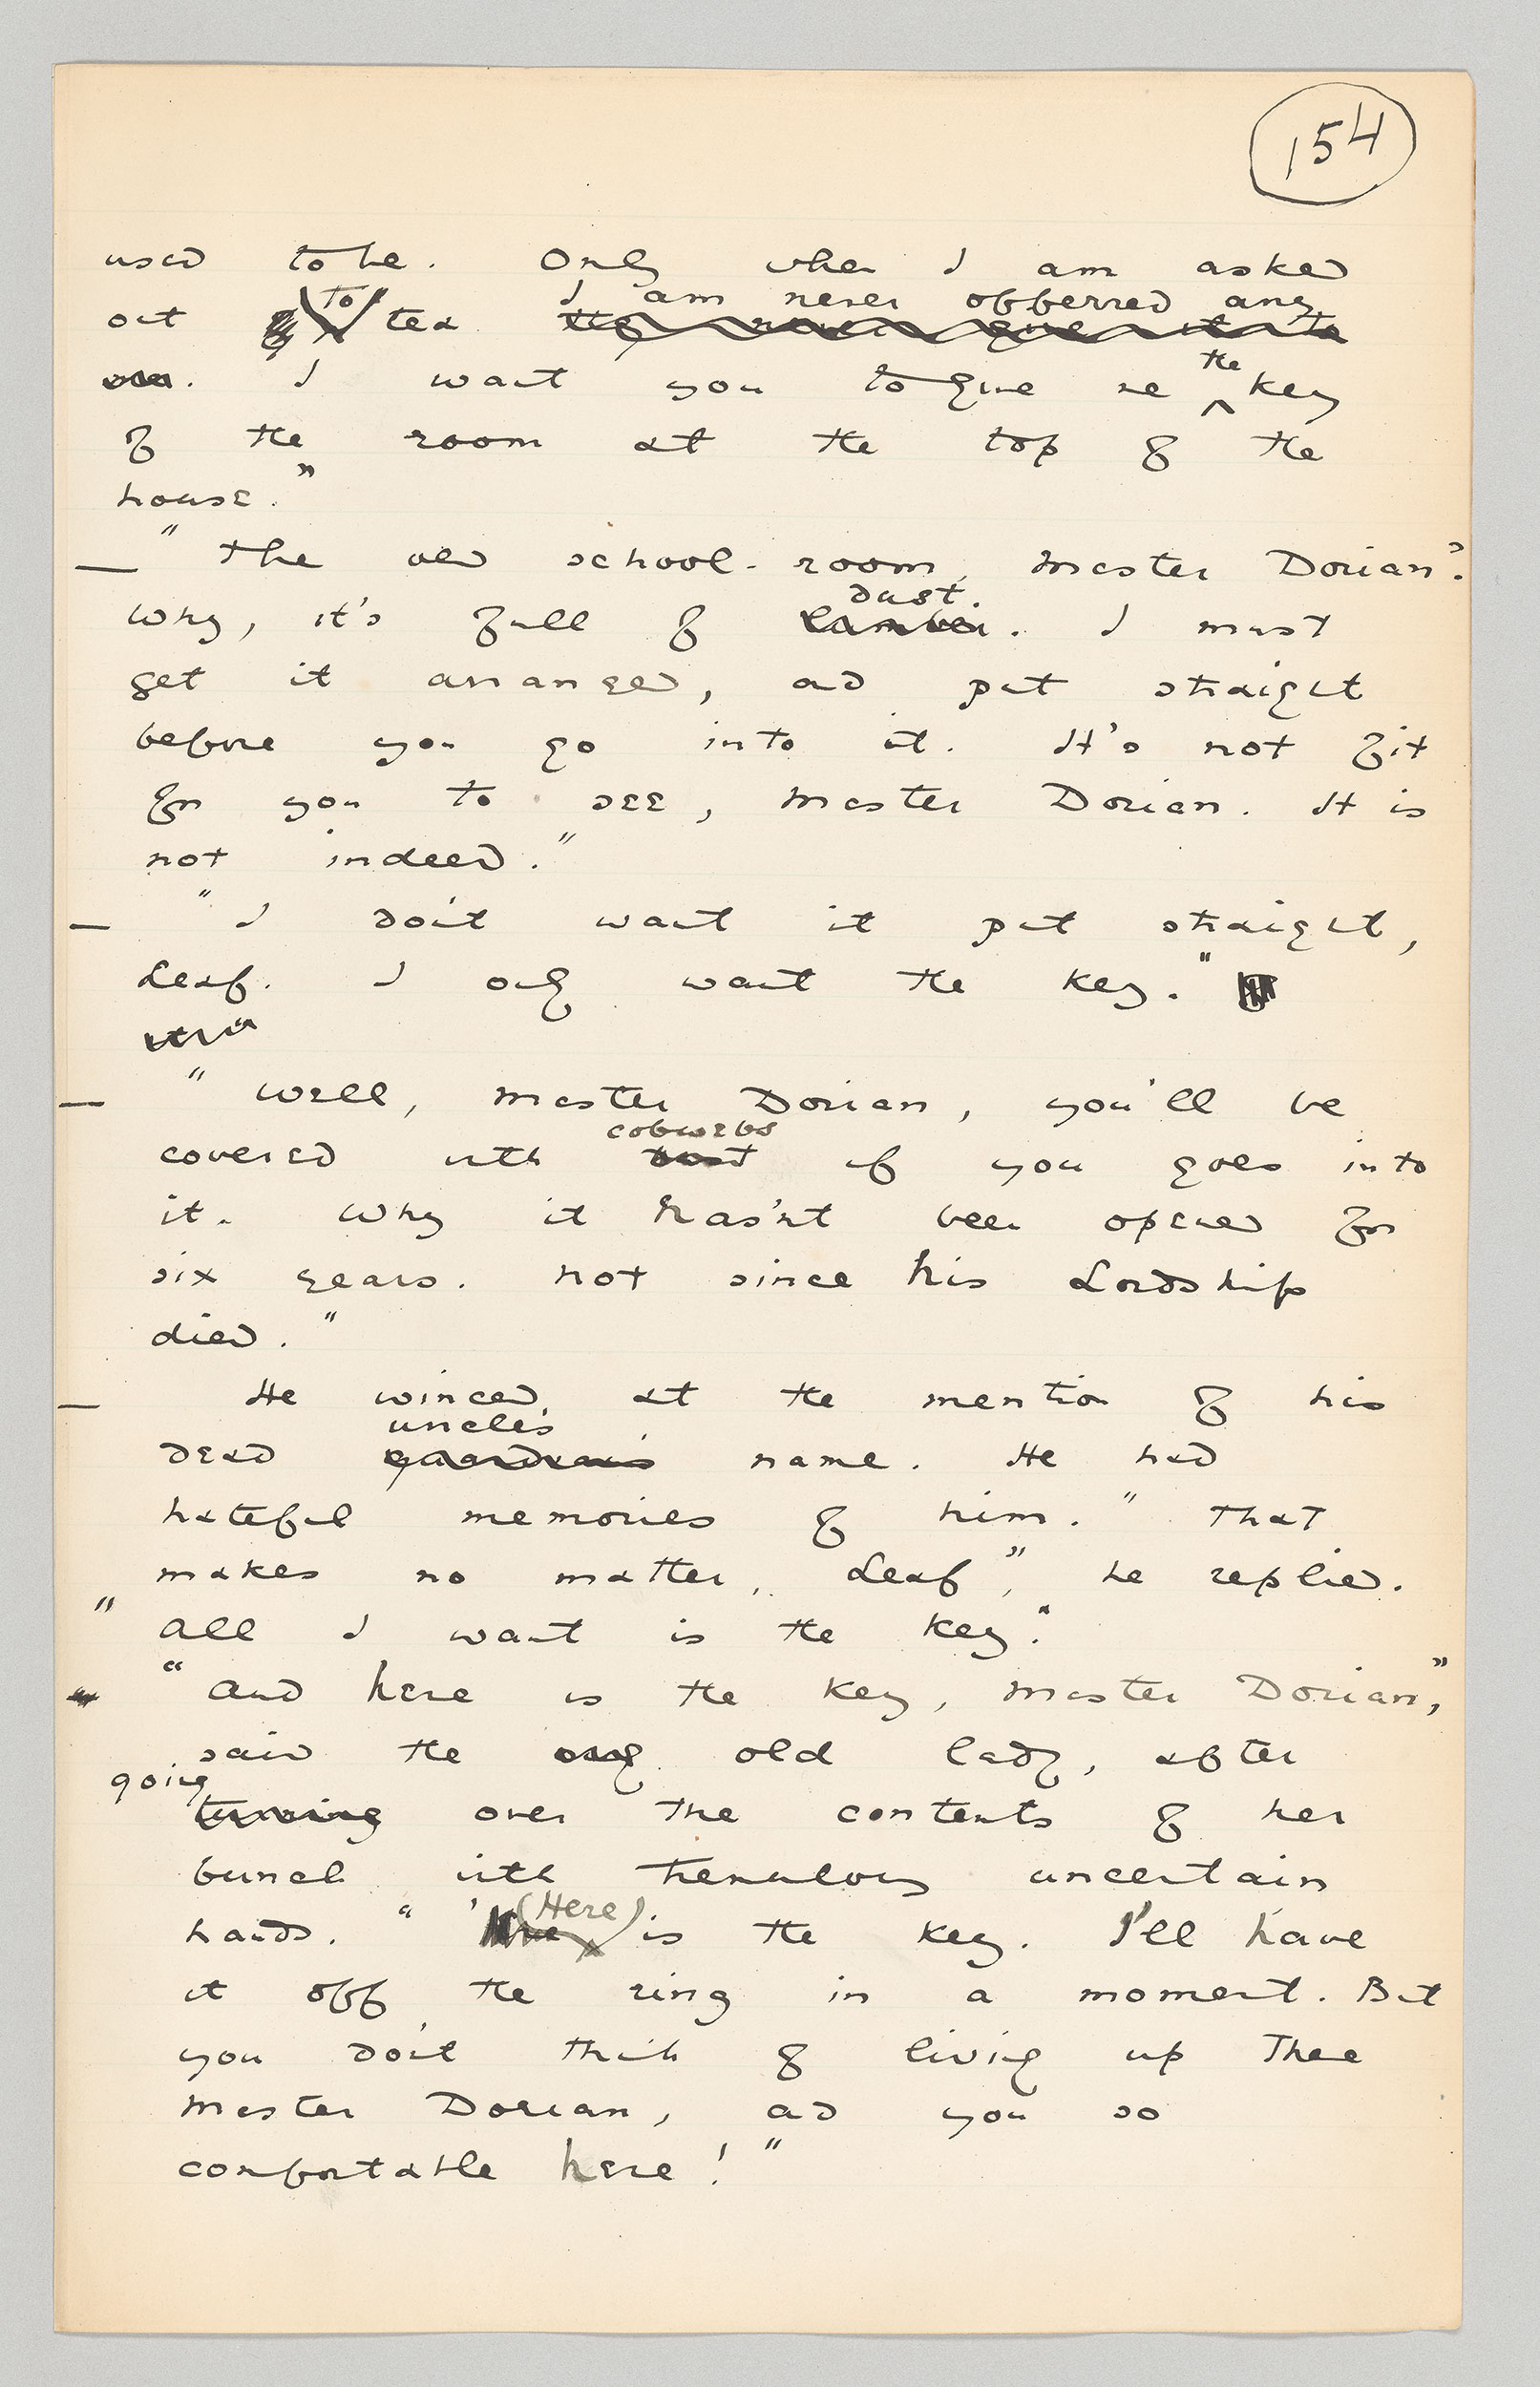 154
used to be. Only when I am asked
I am never offerred any
out to tea
. I want you to give me the key
of the room at the top of the
house."
— "The old school-room, Mester Dorian?
dust.
Why, it's full of lumber. I must
get it arranged, and put straight
before you go into it. It's not fit
for you to see, Mester Dorian. It is
not indeed."
— "I don't want it put straight,
Leaf. I only want the key."
— "Well, Mester Dorian, you'll be
cobwebs
covered with dust if you goes into
it. Why it has'nt been opened for
six years. Not since his Lordship
died."
— He winced at the mention of his
uncle's
dead guardian's name. He had
hateful memories of him. "That
makes no matter, Leaf," he replied.
"All I want is the key."
"And here is the key, Mester Dorian,"
said the old lady, after
going
turning over the contents of her
bunch with tremulous uncertain
(Here)
hands. "Here is the key. I'll have
it off the ring in a moment. But
you don't think of living up there
Mester Dorian, and you so
comfortable here!"